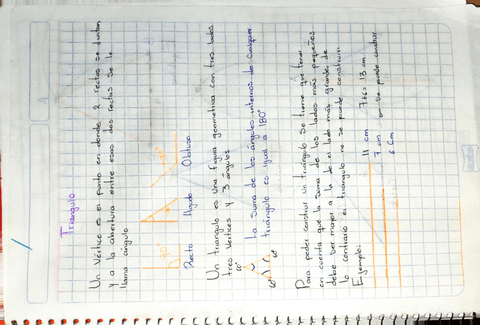 Triangulo
Un Vértice es el punto en donde 2 rectas se juntan
y a la abertura entre esas dos rectas se le
llama ángulo
90°
Recto Agudo Obtuso
Un triangulo es una figura geometrica con tres lados
tres vertices y 3 angulos
60°
La suma de los ángulos internos de cualquier
triangulo es igual a 180°
60° 60
Para poder construir un triangulo se tiene que tener
en cuenta que la suma de los lados más pequeños
debe ser mayor a la de el lado más grande, de
lo contrario el triangulo no se puede construir.
Ejemplo:
11 cm 7+6= 13 cm
7 cm se puede construir
6 cm